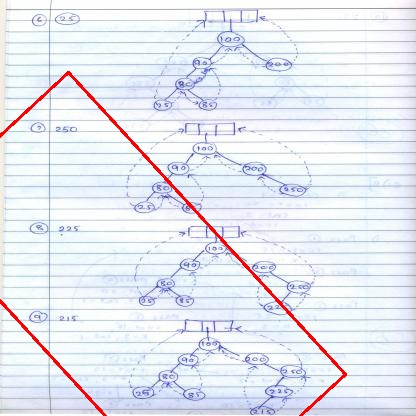 6 25
100
90 200
80
25 85
7 250
100
90 200
80 250
25
8 225
100
90 200
80 250
25 85
9 215
100
90 200
80 250
25 85 225
215